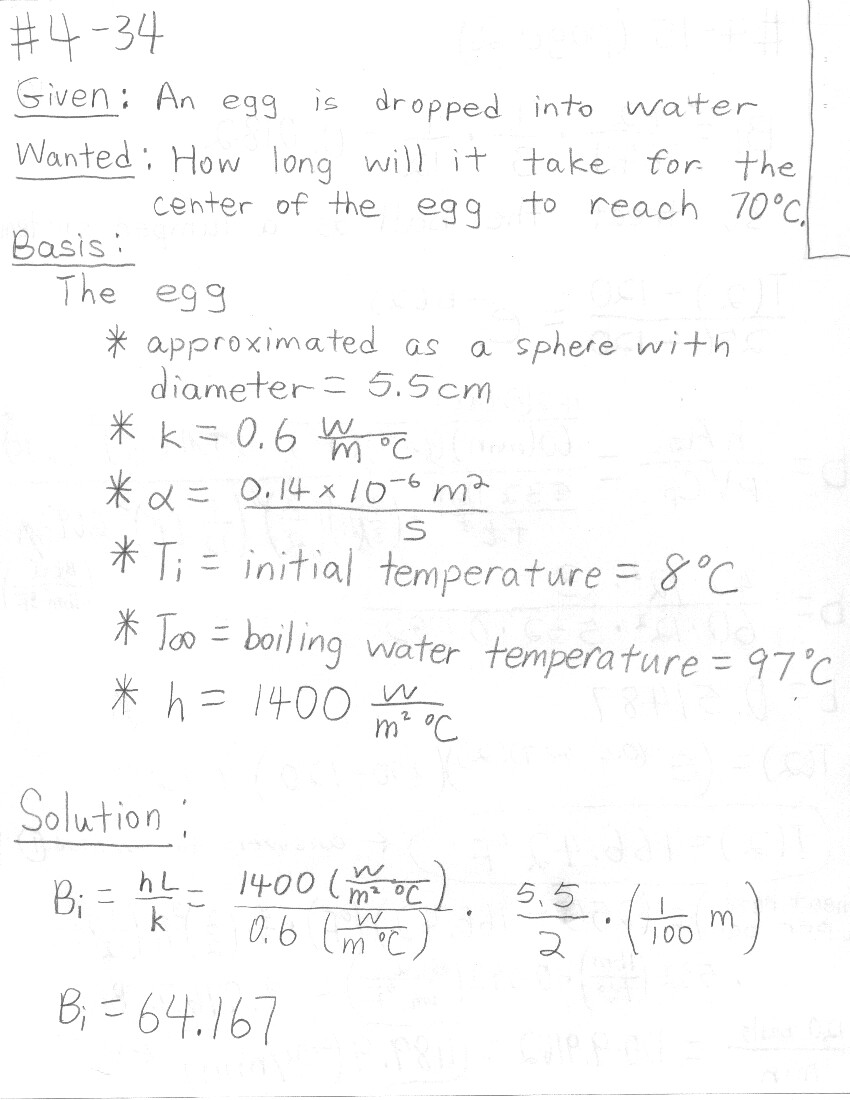 #4-34
Given: An egg is dropped into water
Wanted: How long will it take for the
center of the egg to reach 70°C.
Basis:
The egg
* approximated as a sphere with
diameter = 5.5cm
* k = 0.6 W/(m °C)
* α = (0.14 × 10⁻⁶ m²)/S
* Ti = initial temperature = 8°C
* T∞ = boiling water temperature = 97°C
* h = 1400 W/(m² °C)
Solution:
Bi = hL/k = (1400 (W/(m² °C)))/(0.6 (W/(m °C))) · 5.5/2 · (1/100 m)
Bi = 64.167